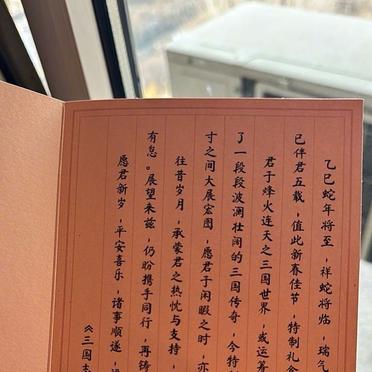 乙巳蛇年将至，祥蛇将临，瑞气
已伴君五载，值此新春佳节，特制礼盒
君于烽火连天之三国世界，或运筹
了一段段波澜壮阔的三国传奇，今特
寸之间大展宏图，愿君于闲暇之时，亦
往昔岁月，承蒙君之热忱与支持，
有怠。展望来兹，仍盼携手同行，再铸
愿君新岁，平安喜乐，诸事顺遂，
《三国志